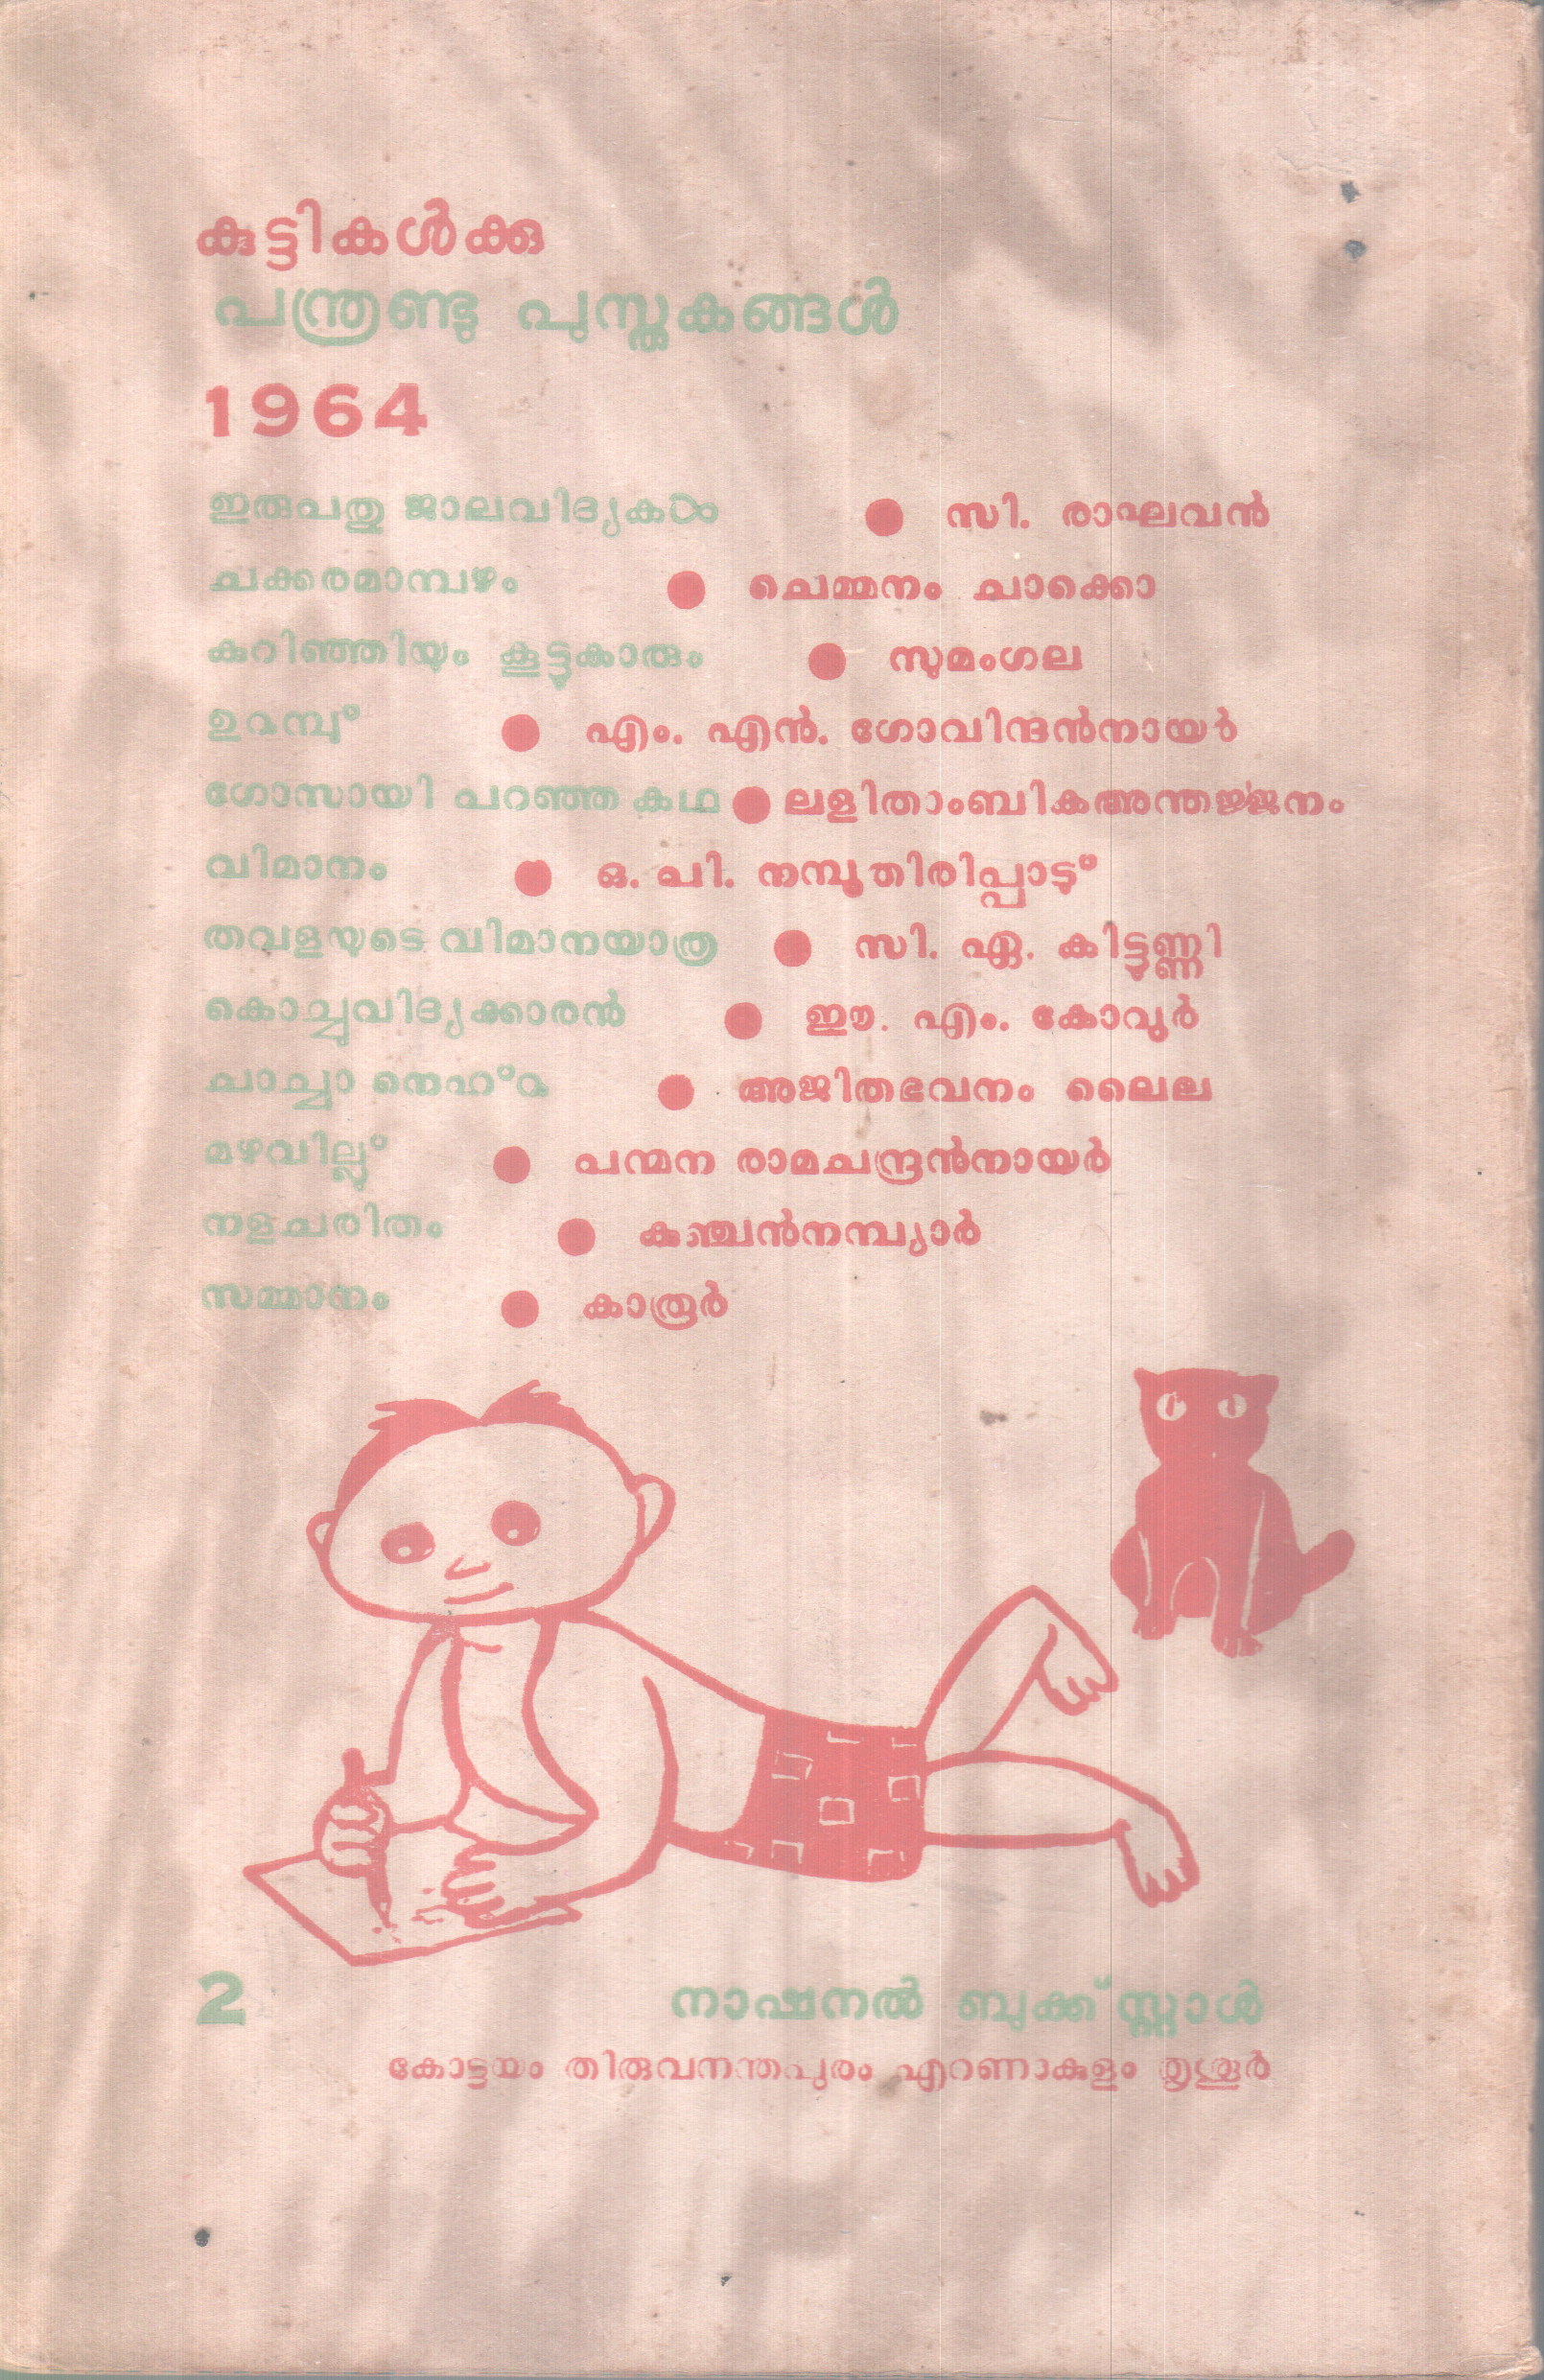 കുട്ടികൾക്കു
പന്ത്രണ്ടു പുസ്തകങ്ങൾ
1964
ഇരുപതു ജാലവിദ്യകൾ ● സി. രാഘവൻ
ചക്കരമാമ്പഴം ● ചെമ്മനം ചാക്കൊ
കുറിഞ്ഞിയും കൂട്ടുകാരും ● സുമംഗല
ഉറുമ്പു് ● എം. എൻ. ഗോവിന്ദൻനായർ
ഗോസായി പറഞ്ഞ കഥ ● ലളിതാംബികഅന്തർജ്ജനം
വിമാനം ● ഒ. പി. നമ്പൂതിരിപ്പാടു്
തവളയുടെ വിമാനയാത്ര ● സി. ഏ. കിട്ടുണ്ണി
കൊച്ചുവിദ്യക്കാരൻ ● ഈ. എം. കോവൂർ
ചാച്ചാ നെഹ്റു ● അജിതഭവനം ലൈല
മഴവില്ലു് ● പന്മന രാമചന്ദ്രൻനായർ
നളചരിതം ● കുഞ്ചൻനമ്പ്യാർ
സമ്മാനം ● കാരൂർ
2 നാഷനൽ ബുക്ക് സ്റ്റാൾ
കോട്ടയം തിരുവനന്തപുരം എറണാകുളം തൃശ്ശൂർ